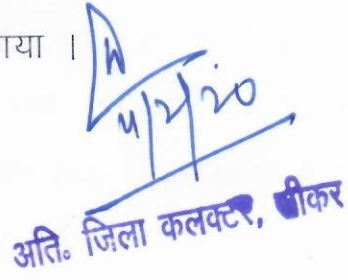 गया ।
4/2/20
अति. जिला कलक्टर, सीकर